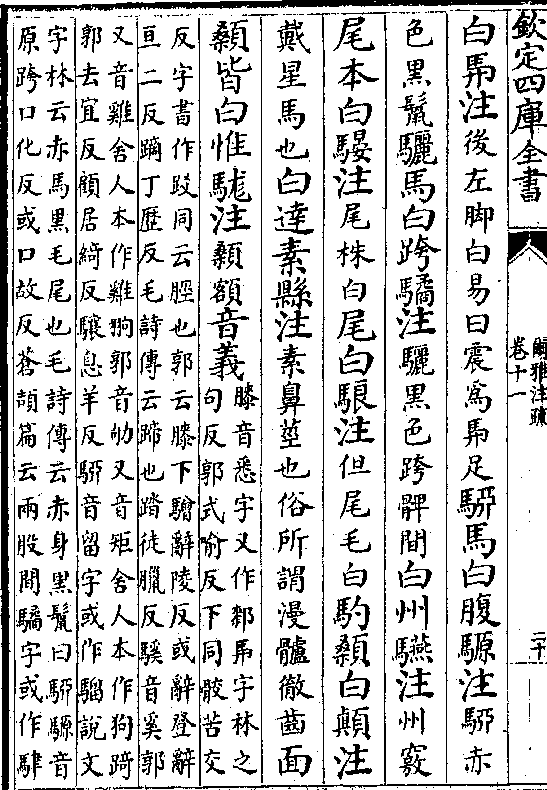 欽定四庫全書
爾雅注疏
卷十一
二十
白馵注後左脚白易曰震為馵足駵馬白腹騵注駵赤
色黑鬛驪馬白跨驈注驪黑色跨髀間白州驠注州竅
尾本白騴注尾株白尾白駺注但尾毛白馰顙白顛注
戴星馬也白達素縣注素鼻莖也俗所謂漫髗徹齒面
顙皆白惟駹注顙額音義
膝音悉字又作䣛馵字林之
句反郭式喻反下同骹苦交
反字書作跤同云脛也郭云膝下驓辭陵反或辭登辭
亘二反蹢丁歷反毛詩傳云蹄也踏徒臘反騱音奚郭
又音雞舍人本作雞狗郭音劬又音矩舍人本作狗踦
郭去宜反顧居綺反驤息羊反駵音留字或作騮說文
字林云赤馬黑毛尾也毛詩傳云赤身黑鬛曰駵騵音
原跨口化反或口故反蒼頡篇云兩股間驈字或作䮇